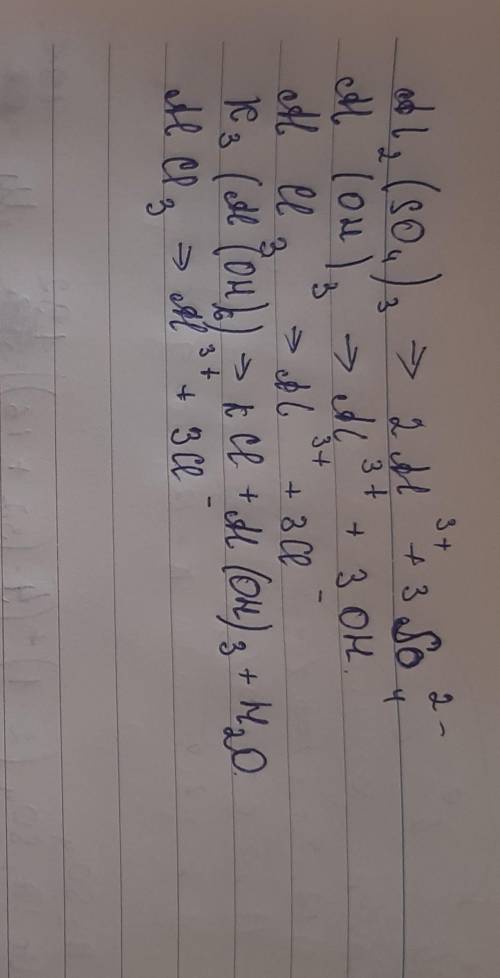 Al₂(SO₄)₃ → 2Al³⁺ + 3SO₄²⁻
Al(OH)₃ → Al³⁺ + 3OH.
AlCl₃ → Al³⁺ + 3Cl⁻
K₃(Al(OH)₆) → KCl + Al(OH)₃ + H₂O.
AlCl₃ → Al³⁺ + 3Cl⁻